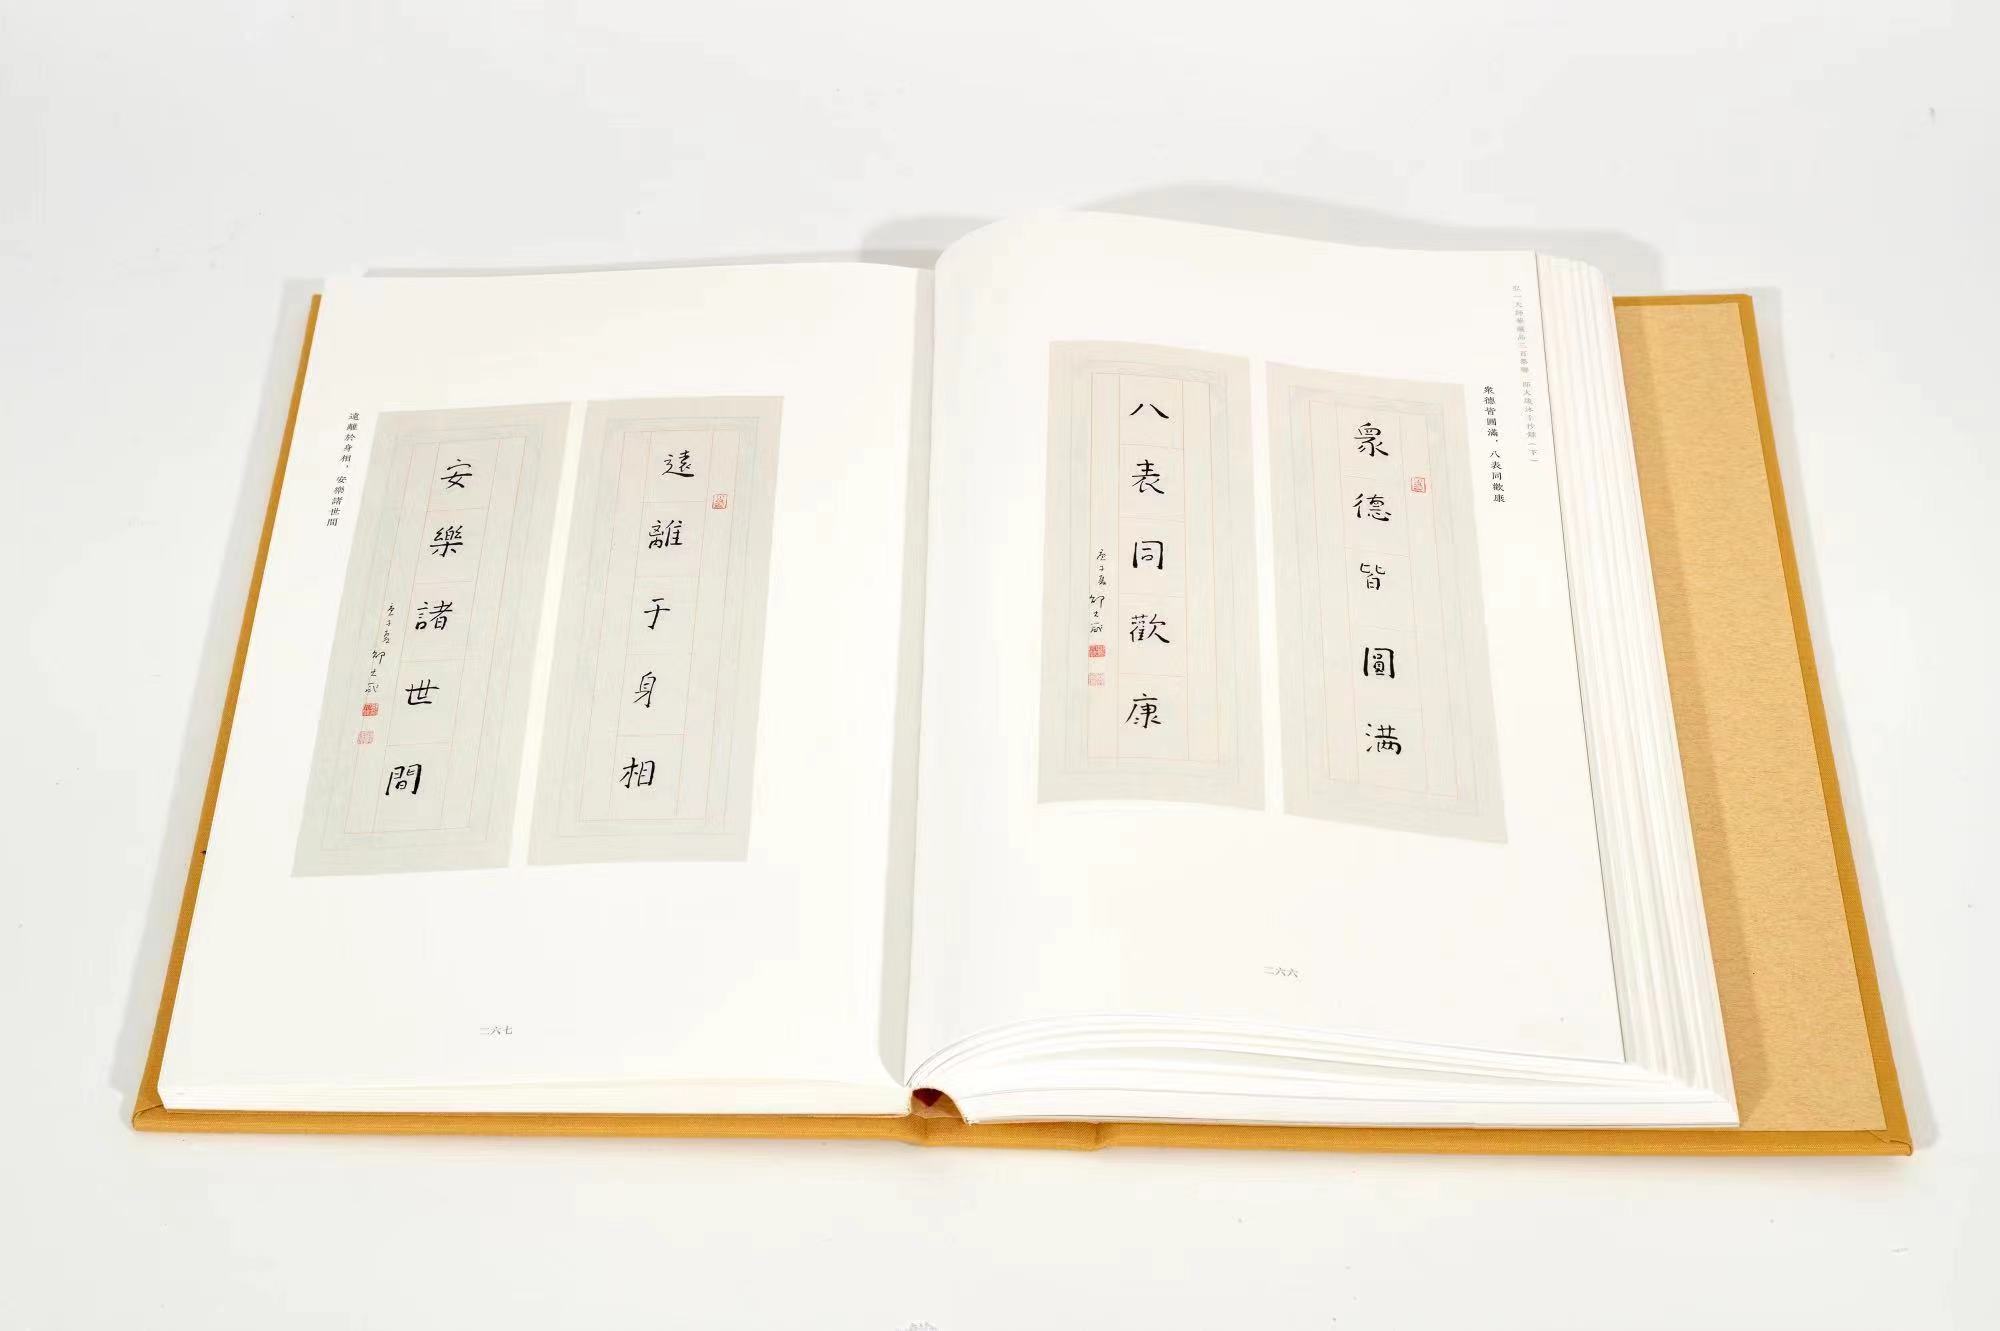 弘一大師華嚴集三百集聯 邱大成沐手抄錄（下）
衆德皆圓滿，八表同歡康
衆德皆圓满
八表同歡康
庚子
二六六
遠離于身相
安樂諸世間
庚子
遠離於身相，安樂諸世間
二六七